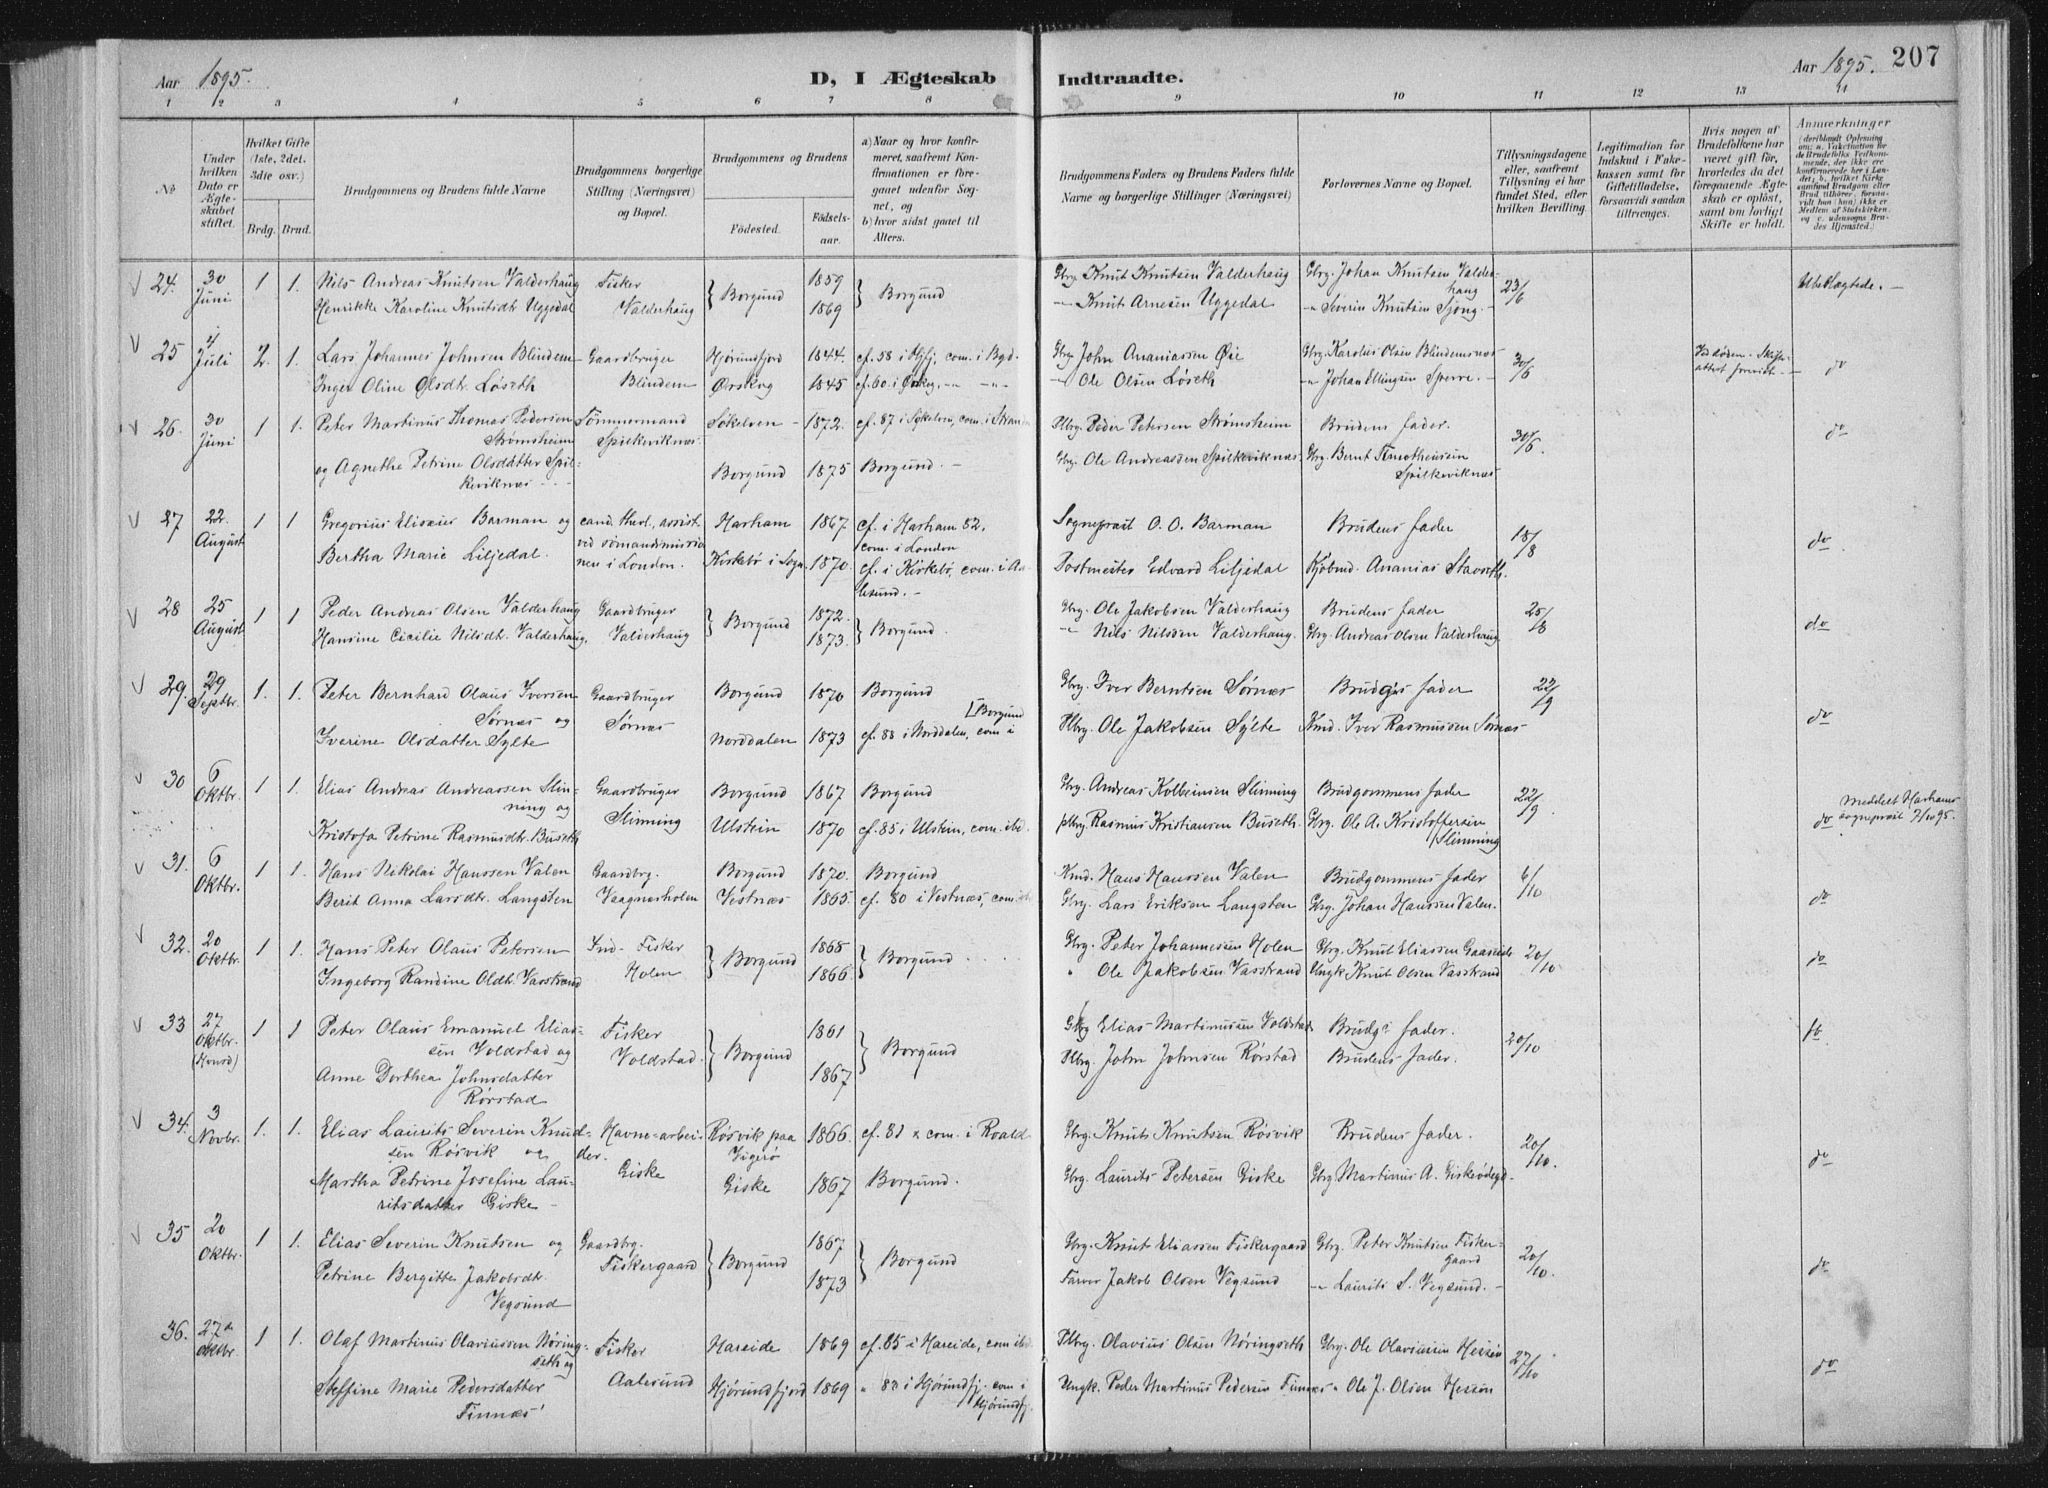 Aar 1895.
D, I Ægteskab Indtraadte.
Aar 1895. 207
1 2 3 4 5 6 7 8 9 10 11 12 13 14
No
Under hvilken Dato er Ægteskabet stiftet.
Hvilket Gifte (1ste, 2det, 3die osv.)
Brdg. Brud.
Brudgommens og Brudens fulde Navne
Brudgommens borgerlige Stilling (Næringsvei) og Bopæl.
Brudgommens og Brudens
Födested. Födsels-aar.
a) Naar og hvor konfirmeret, saafremt Konfirmationen er foregaaet udenfor Sognet, og
b) hvor sidst gaaet til Alters.
Brudgommens Faders og Brudens Faders fulde Navne og borgerlige Stillinger (Næringsvei)
Forlovernes Navne og Bopæl.
Tillysningsdagene eller, saafremt Tillysning ei har fundet Sted, efter hvilken Bevilling.
Legitimation for Indskud i Enkekassen samt for Giftetilladelse, forsaavidt saadan tiltrænges.
Hvis nogen af Brudefolkene har været gift før, hvorledes da det foregaaende Ægteskab er oplöst, samt om lovligt Skifte er holdt.
Anmærkninger
24. 30 Juni 1 1. Nils Andreas Knutsen Valderhaug Fisker Valderhaug Borgund 1859 Borgund Gbrg. Knut Knutsen Valderhaug Gbrg. Johan Knutsen Valderhaug 23/6 Ubeslægtede.
Henrikke Karoline Knutsdt. Uggedal 1869 -"- Knut Arnesen Uggedal -"- Severin Knutsen Sjong.
25 4 Juli 2. 1. Lars Johannes Johnsen Blindem Gaardbruger Hjørundfjord 1844. cf. 58 i Hjfj, com. i Bgd. Gbrg. John Ananiassen Øie Gbrg. Karolus Olsen Blindemsnes 30/6 do
Inger Oline Olsdtr. Løseth Blindem Ørskog 1845 cf. 60. i Ørskog, -"- -"- -"- Ole Olsen Løseth -"- Johan Ellingsen Sperre.
26. 30 Juni 1 1. Peter Martinus Thomas Pedersen Tömmermand Sökelven 1872. cf. 87 i Sökelven, com. i Stranden Plbrg. Peder Petersen Strømsheim Brudens fader. 30/6. do
Strømsheim Spilkeviknæs.
og Agnethe Petrine Olsdatter Spil- Borgund 1875 Borgund. Gbrg. Ole Andreassen Spilkeviknæs. Gbrg. Bernt Timotheussen
keviknæs Spilkeviknæs
27 22. August 1 1 Gregorius Elisæus Barman og cand. theol., assist. Harham 1867 cf. i Harham 82. Sogneprest O. O. Barman Brudens fader 18/8 do
Bertha Marie Liljedal. ved sømandsmissionen i London. Kirkebö i Sogn. 1870. com. i London cf. i Kirkebö, com. i Aalesund. Postmester Edvard Liljedal Kjöbmd. Ananias Stavseth.
28 25 August 1 1 Peder Andreas Olsen Valderhaug Gaardbruger Borgund 1872. Borgund. Gbrg. Ole Jakobsen Valderhaug Brudens fader 25/8 do
Hansine Cicilie Nilsdt. Valderhaug. Valderhaug 1873. -"- Nils Nilssen Valderhaug. Gbrg. Andreas Olsen Valderhaug
29. 29 Septbr. 1. 1. Peter Bernhard Olaus Iversen Gaardbruger Borgund 1870 Borgund Gbrg. Iver Berntsen Sørnæs Brudg's fader 22/9 do
Sørnæs og Sørnæs
Iverine Olsdatter Sylte Norddalen 1873 cf. 88 i Norddalen, com i [Borgund Plbrg. Ole Jakobsen Sylte Kmd. Iver Rasmussen Sørnæs
30 6 Oktbr. 1 1. Elias Andreas Andreassen Slin- Gaardbruger Borgund 1867 Borgund Gbrg. Andreas Kolbeinsen Slinning Brudgommens fader 22/9 do Meddelt Harhams sogneprest 7/10 95.
ning og Slinning
Kristofa Petrine Rasmusdt. Buseth Ulstein 1870 cf. 85 i Ulstein, com. ibd. Plbrg. Rasmus Kristiansen Buseth. Gbrg. Ole A. Kristoffersen Slinning
31. 6 Oktbr. 1 1. Hans Nikolai Hanssen Valen Gaardbrg. Borgund 1870. Borgund Kmd. Hans Hanssen Valen Brudgommens fader 6/10 do
Berit Anna Larsdtr. Langsten Vaagnæsholen Vestnæs 1865. cf. 80 i Vestnæs, com. ibd Gbrg. Lars Eriksen Langsten Gbrg. Johan Hanssen Valen.
32. 20 Oktbr. 1 1. Hans Peter Olaus Petersen Ind. Fisker Borgund 1868 Borgund Gbrg. Peter Johannessen Holen Gbrg. Knut Eliassen Gaaseide 20/10. do
Ingeborg Randine Oldtr. Vasstrand Holen 1866. " Ole Jakobsen Vasstrand Ungk Knut Olsen Vasstrand
33 27 Oktbr. 1 1 Peter Olaus Emanuel Elias- Fisker Borgund 1861 Borgund Gbrg Elias Martinussen Voldstad Brudg's fader. 20/10 do
sen Voldstad og Voldstad.
Anne Dorthea Johnsdatter 1867 Plbrg. John Johnsen Rörstad Brudens fader.
Rörstad
34. 3 Novbr. 1. 1. Elias Laurits Severin Knud- Havne-arbei- Rösvik paa 1866. cf. 81 & com. i Roald Gbrg. Knut Knutsen Rösvik Brudens fader. 20/10. do
sen Rösvik og der. Vigerø
Martha Petrine Josefine Lau- Giske Giske 1867 Borgund. Gbrg. Laurits Petersen Giske Gbrg Martinus A. Giskeödegd.
ritsdatter Giske
35 20 Oktbr. 1 1. Elias Severin Knutsen og Gaardbrg. Borgund 1867 Borgund Gbrg. Knut Eliassen Fiskergaard Gbrg. Peter Knutsen Fiskergaard 20/10. do
Petrine Bergitte Jakobsdt. Fiskergaard 1873 Farver Jakob Olsen Vegsund -"- Laurits S. Vegsund.
Vegsund
36. 27de Oktbr. 1 1. Olaf Martinus Olaviussen Nöring- Fisker Hareide 1869 cf. 85 i Hareide, com ibd. Plbrg. Olavius Olsen Nöringseth Gbrg. Ole Olavissen Hessen 27/10 do
seth og
Steffine Marie Pedersdatter Aalesund Hjörundfjord 1869 " 83 i Hjörundfj. com i Hjörundfj. Ungk. Peder Martinus Pedersen Finnæs " Ole J. Olsen Hessen
Finnæs